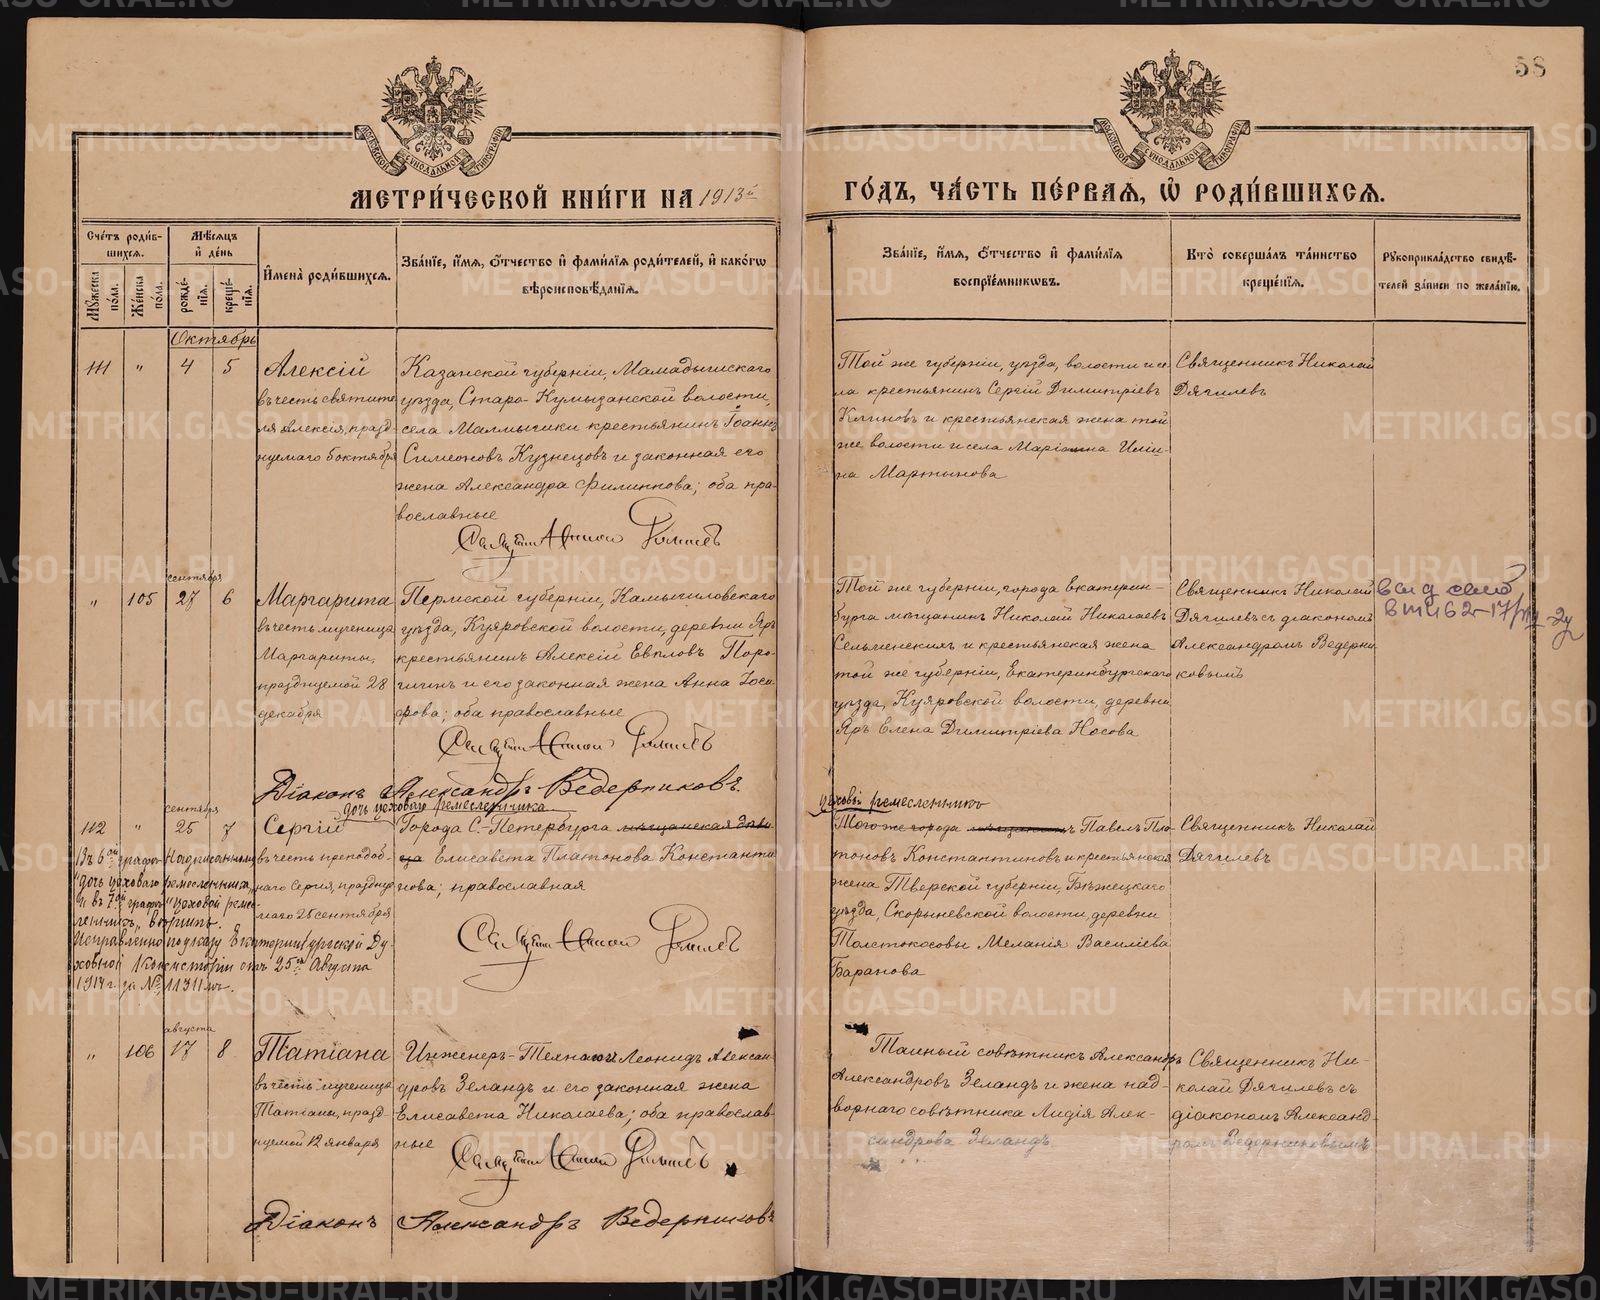 58
МОСКОВСКОЙ СУНОДАЛЬНОЙ ТИПОГРАФІИ
МОСКОВСКОЙ СУНОДАЛЬНОЙ ТИПОГРАФІИ
МЕТРИ́ЧЕСКОЙ КНИ́ГИ НА 1913й
ГО́ДЪ, ЧА́СТЬ ПЕ́РВАЯ, Ѡ РОДИ́ВШИХСЯ.
Сче́тъ роди́в-
шихся.
Му́жеска по́ла.
Же́нска по́ла.
Мѣ́сяцъ
и҆ де́нь
рожде́-
нїя.
креще́-
нїя.
И҆мена̀ роди́вшихся.
Зва́нїе, и҆́мя, ѻ҆́тчество и҆ фами́лїя роди́телей, и҆ како́гѡ
вѣроисповѣ́данїя.
Зва́нїе, и҆́мя, ѻ҆́тчество и҆ фами́лїя
воспрїе́мникѡвъ.
Кто̀ соверша́лъ та́инство
креще́нїя.
Рукоприкла́дство свидѣ́-
телей за́писи по жела́нїю.
Октябрь
111 " 4 5
Алексій
въ честь святите-
ля Алексія, празд-
нуемаго 5 октября
Казанской губерніи, Мамадышскаго
уѣзда, Старо-Кумызанской волости,
села Малмышки крестьянинъ Іоаннъ
Симеоновъ Кузнецовъ и законная его
жена Александра Филиппова; оба пра-
вославные
Той же губерніи, уѣзда, волости и се-
ла крестьянинъ Сергій Димитріевъ
Климовъ и крестьянская жена той
же волости и села Маріанна Ильи-
на Мартынова
Священникъ Николай
Дягилевъ
сентября
" 105 27 6
Маргарита
въ честь мученицы
Маргариты,
празднуемой 28
декабря
Пермской губерніи, Камышловскаго
уѣзда, Куяровской волости, деревни Яръ
крестьянинъ Алексій Евпловъ Поро-
шинъ и его законная жена Анна Іоси-
фова; оба православные
Той же губерніи, города Екатерин-
бурга мѣщанинъ Николай Николаевъ
Сельменскихъ и крестьянская жена
той же губерніи, Екатеринбургскаго
уѣзда, Куяровской волости, деревни
Яръ Елена Димитріева Носова
Священникъ Николай
Дягилевъ съ діакономъ
Александромъ Ведерни-
ковымъ
Діаконъ Александръ Ведерниковъ.
сентября
112 " 25 7
Сергій
въ честь преподоб-
наго Сергія, праздну-
емаго 25 сентября
дочь цеховаго ремесленника
Города С.-Петербурга мѣщанская дѣви-
ца Елисавета Платонова Константи-
нова; православная
цеховый ремесленникъ
Того же города мѣщанинъ Павелъ Пла-
тоновъ Константиновъ и крестьянская
жена Тверской губерніи, Бѣжецкаго
уѣзда, Скорыневской волости, деревни
Толстокосовы Меланія Василіева
Баранова
Священникъ Николай
Дягилевъ
Въ 6ой графѣ надписанному
"дочь цеховаго ремесленника,"
и въ 7ой графѣ "цеховой ремес-
ленникъ" вѣрить.
Исправлено по указу Екатеринбургской Ду-
ховной Консисторіи отъ 25го Августа
1914 г. за № 11311мъ.
августа
" 106 17 8
Татіана
въ честь мученицы
Татіаны, празд-
нуемой 12 января
Инженеръ-Технологъ Леонидъ Алексан-
дровъ Зеландъ и его законная жена
Елисавета Николаева; оба православ-
ные
Тайный совѣтникъ Александръ
Александровъ Зеландъ и жена над-
ворнаго совѣтника Лидія Алек-
сандрова Зеландъ
Священникъ Ни-
колай Дягилевъ съ
діакономъ Александ-
ромъ Ведерниковымъ
Діаконъ Александръ Ведерниковъ
METRIKI.GASO-URAL.RU